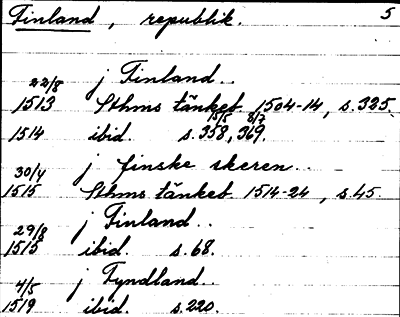 Finland, republik. 5
22/8 j Finland..
1513 Sthms tänkeb. 1504-14, s.325.
15/5 8/7
1514 ibid. s.358, 369.
30/4 j finske skeren..
1515 Sthms tänkeb. 1514-24, s.45.
29/8 j Finland..
1515 ibid. s.68.
4/5 j Fyndland..
1519 ibid. s.220.